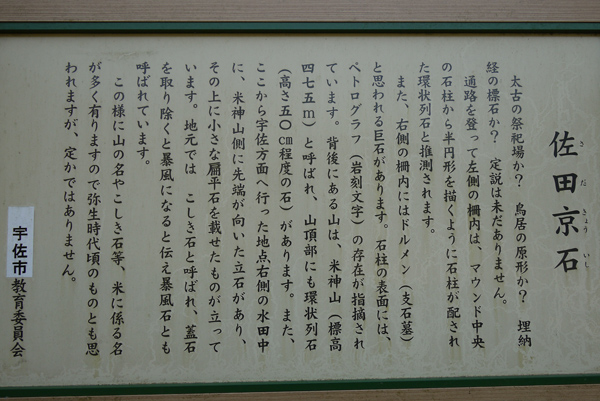 佐田京石
さだきょういし
太古の祭祀場か？　鳥居の原形か？　埋納
経の標石か？　定説は未だありません。
通路を登って左側の柵内は、マウンド中央
の石柱から半円形を描くように石柱が配され
た環状列石と推測されます。
また、右側の柵内にはドルメン（支石墓）
と思われる巨石があります。石柱の表面には、
ペトログラフ（岩刻文字）の存在が指摘され
ています。背後にある山は、米神山（標高
四七五ｍ）と呼ばれ、山頂部にも環状列石
（高さ五〇㎝程度の石）があります。また、
ここから宇佐方面へ行った地点右側の水田中
に、米神山側に先端が向いた立石があり、
その上に小さな扁平石を載せたものが立って
います。地元では　こしき石と呼ばれ、蓋石
を取り除くと暴風になると伝え暴風石とも
呼ばれています。
この様に山の名やこしき石等、米に係る名
が多く有りますので弥生時代頃のものとも思
われますが、定かではありません。
宇佐市教育委員会